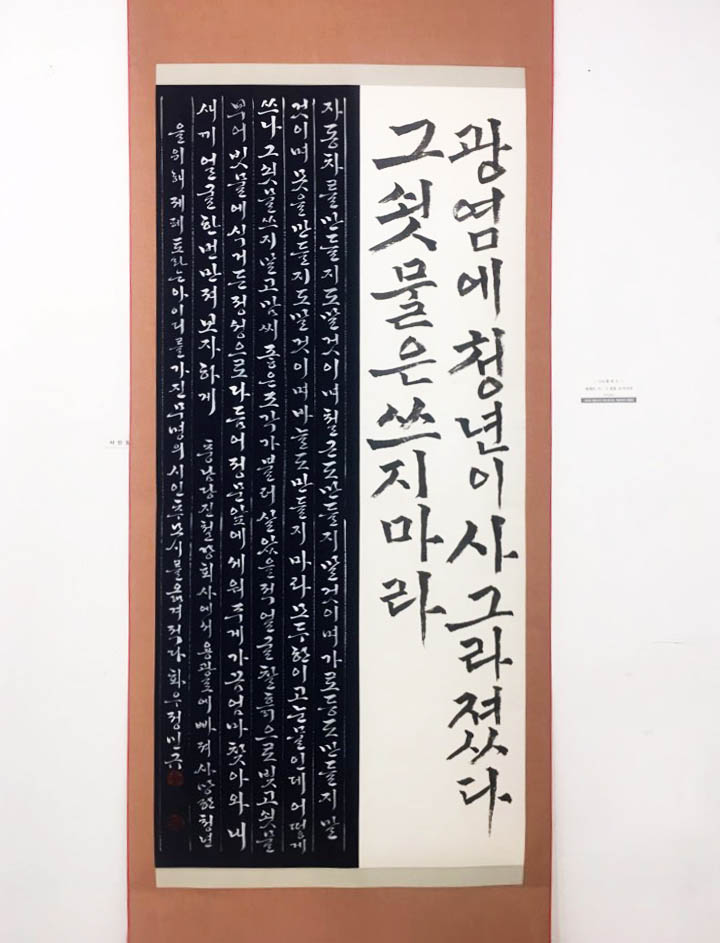 광염에 청년이 사그라졌다
그 쇳물은 쓰지마라
자동차를 만들지도 말 것이며 철근도 만들지 말 것이며 가로등도 만들지 말
것이며 못을 만들지도 말 것이며 바늘도 만들지 마라 모두 한이고 눈물인데 어떻게
쓰나 그 쇳물 쓰지 말고 맘씨 좋은 조각가 불러 살았을 적 얼굴 찰흙으로 빚고 쇳물
부어 빗물에 식거든 정성으로 다듬어 정문 앞에 세워 주게 가끔 엄마 찾아와 내
새끼 얼굴 한번 만져 보자 하게 충남 당진 철강회사에서 용광로에 빠져 사망한 청년
을 위해 제페토라는 아이디를 가진 무명의 시인 추모시를 옮겨 적다